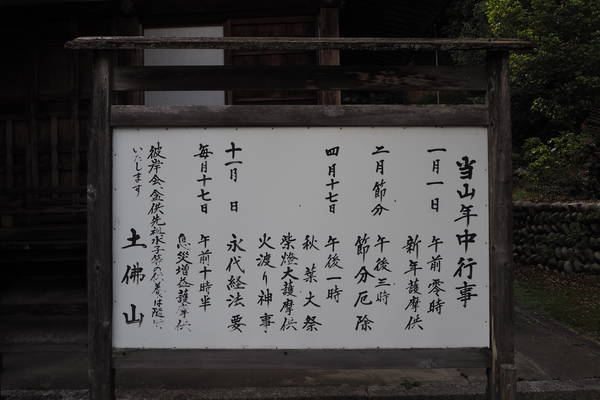 当山年中行事
一月一日 午前零時
新年護摩供
二月節分 午後三時
節分厄除
四月十七日 午後一時
秋葉大祭
柴燈大護摩供
火渡り神事
十一月 日 永代経法要
毎月十七日 午前十時半
息災増益護摩供
彼岸会、盆供先祖水子等の供養は随時
いたします
土佛山